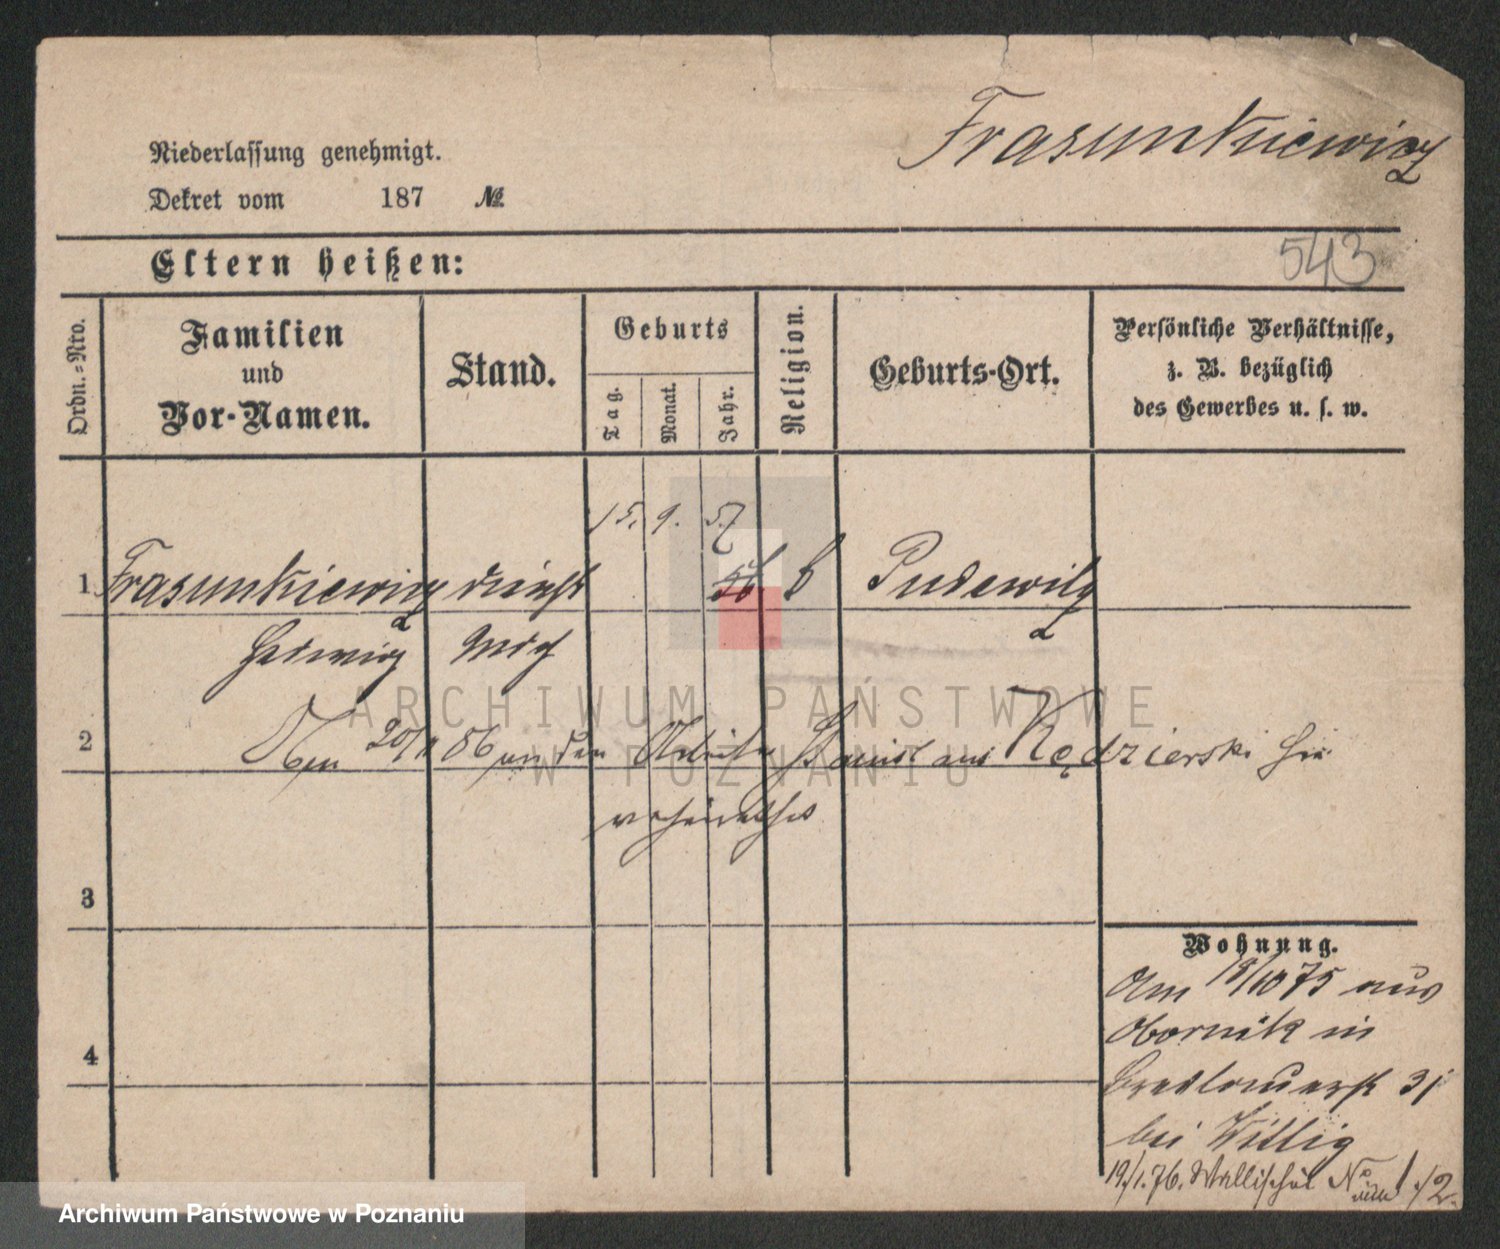 Frasunkiewicz
Niederlassung genehmigt.
Dekret vom 187 №
543
Eltern heißen:
Ordn.-Nro.
Familien
und
Vor-Namen.
Stand.
Geburts
Tag.
Monat.
Jahr.
Religion.
Geburts-Ort.
Persönliche Verhältnisse,
z. B. bezüglich
des Gewerbes u. s. w.
15. 9. 57
1 Frasunkiewicz dienst 56 Pudewitz
Hedwig
2 86 an den Arbeiter Stanislaus Kędzierski hier
verheirathet
3
Wohnung.
Am 18/10 75 aus
Obornik in
4
Breslauerstr 31
bei Wittig
19/1. 76. Wallischei No 1/2.
ARCHIWUM PAŃSTWOWE
W POZNANIU
Archiwum Państwowe w Poznaniu